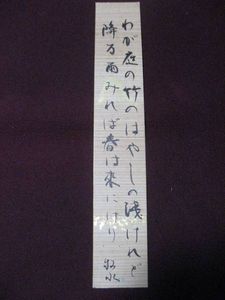 わが庭の竹のはやしの浅けれど
降る雨みれば春は来にけり
牧水